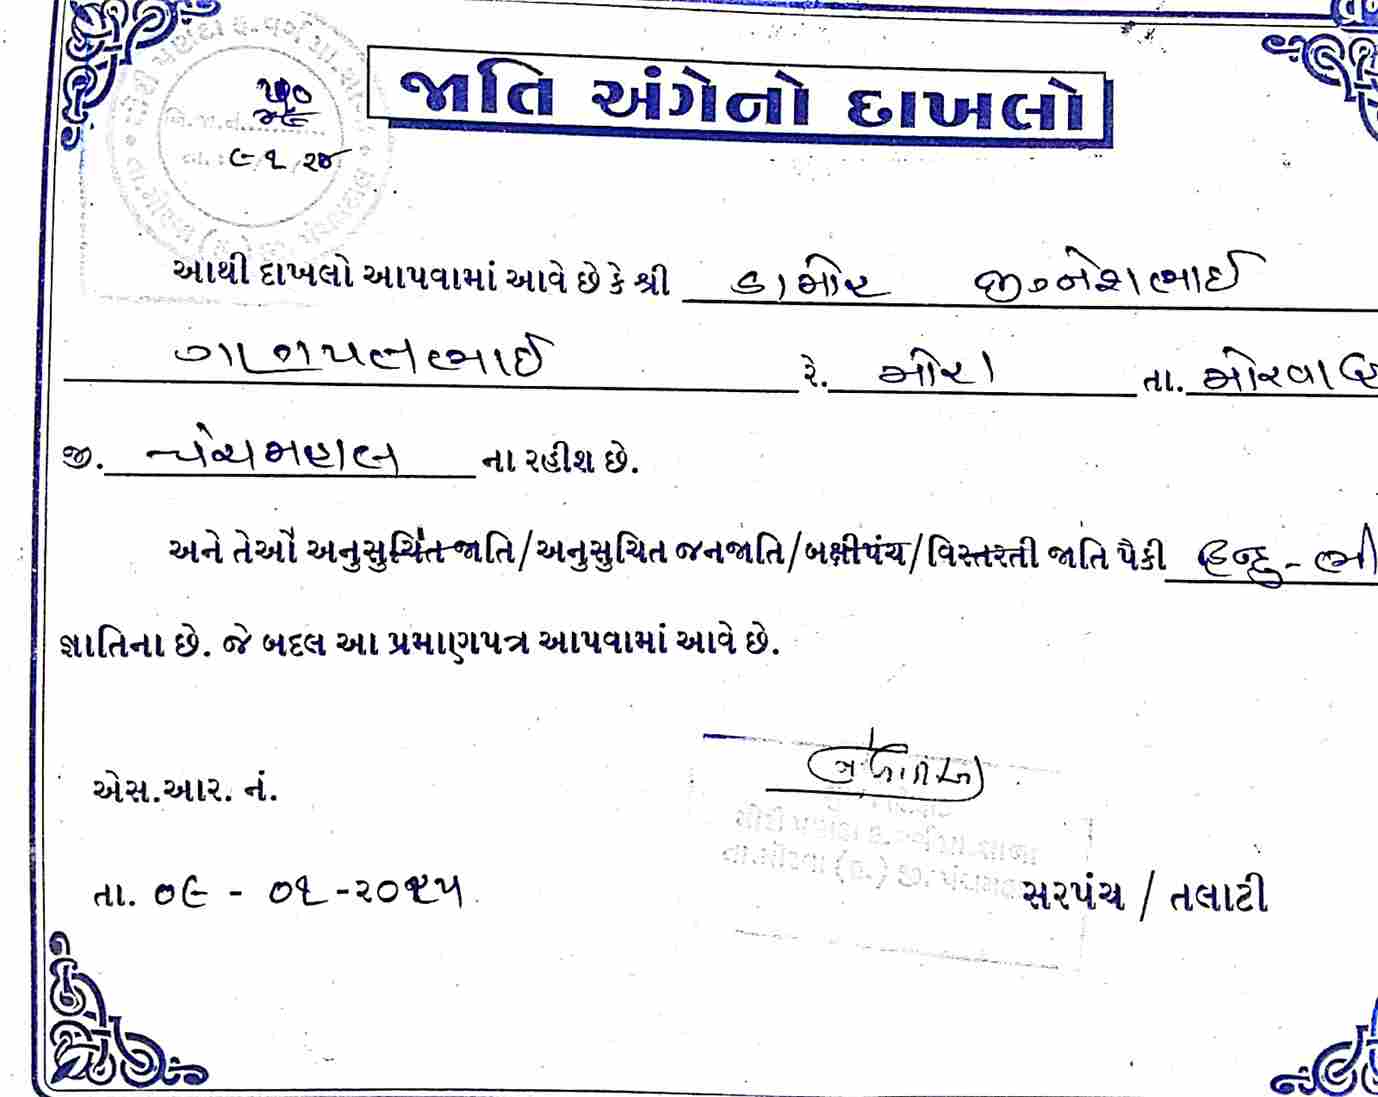 જાતિ અંગેનો દાખલો
૯-૧
આથી દાખલો આપવામાં આવે છે કે શ્રી ડામોર જીજ્ઞેશભાઈ
ગણપતભાઈ રે. મોરા તા. મોરવા
જી. પંચમહાલ ના રહીશ છે.
અને તેઓ અનુસુચિત જાતિ/અનુસુચિત જનજાતિ/બક્ષીપંચ/વિસ્તરતી જાતિ પૈકી હિન્દુ-ભી
જ્ઞાતિના છે. જે બદલ આ પ્રમાણપત્ર આપવામાં આવે છે.
એસ.આર. નં.
તા. ૦૯-૦૧-૨૦૨૫
સરપંચ / તલાટી